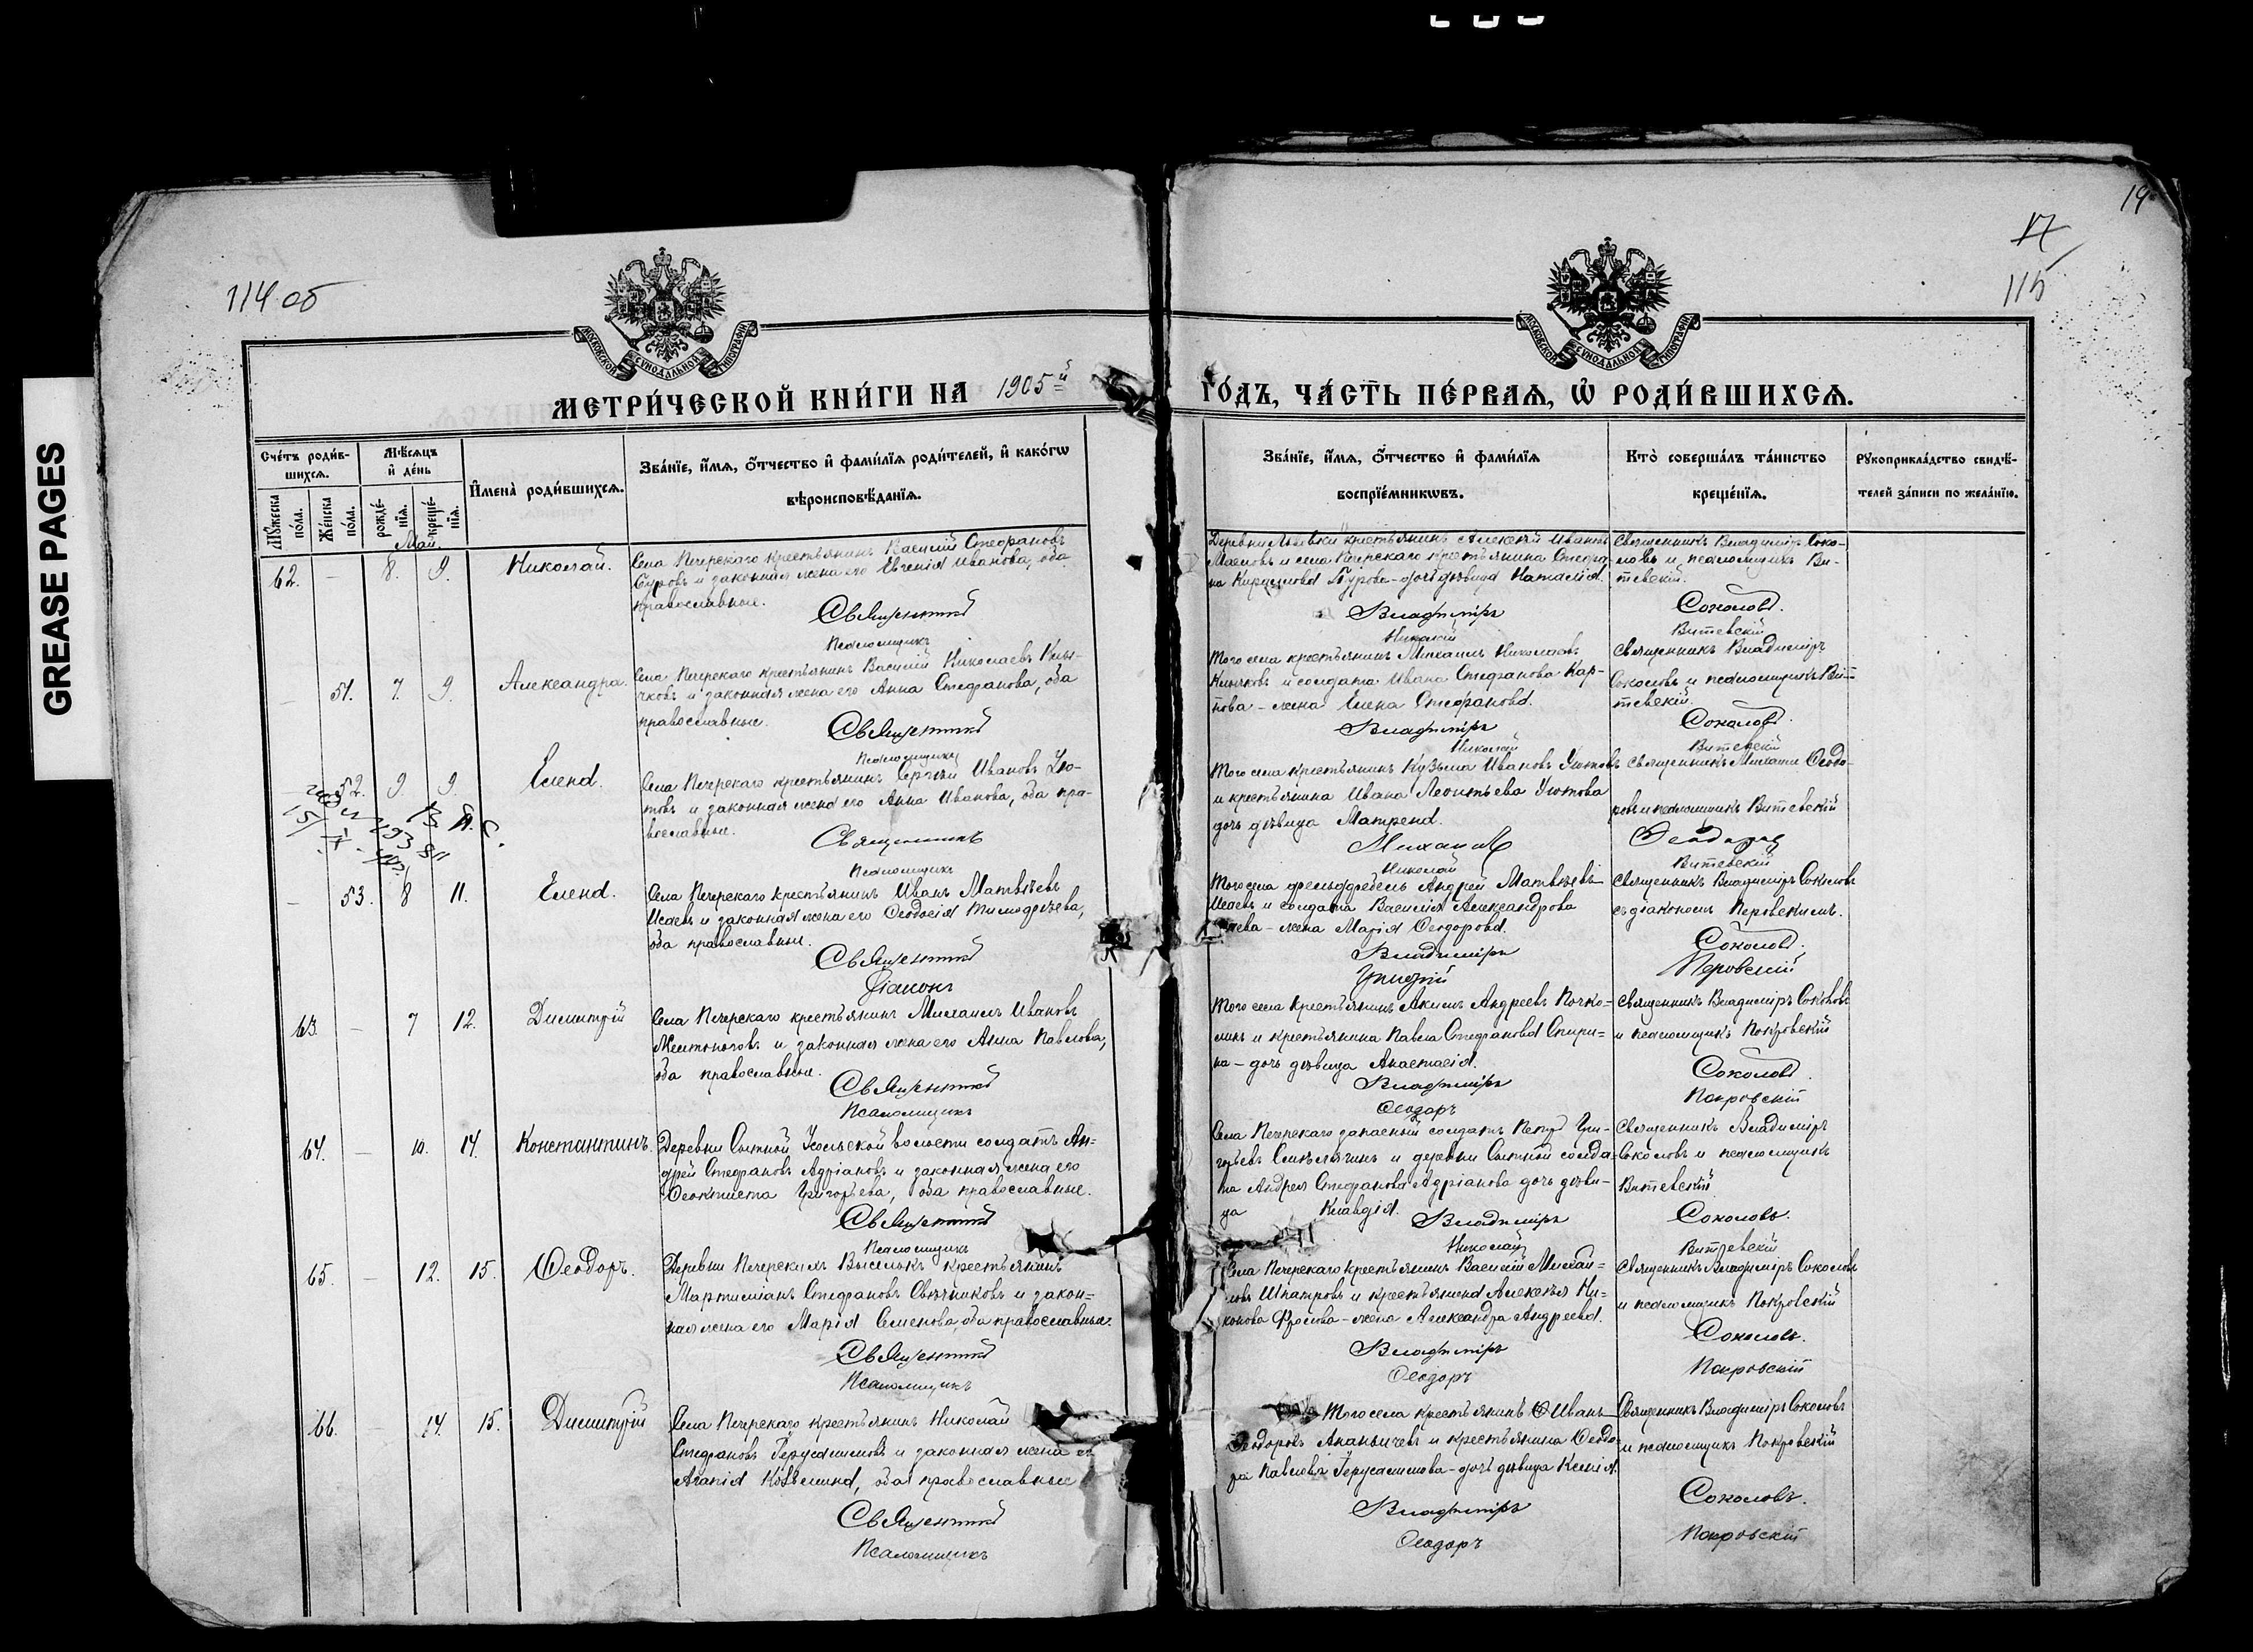 GREASE PAGES
114 об
19
17
115
МОСКОВСКОЙ СУНОДАЛЬНОЙ ТИПОГРАФІИ
МОСКОВСКОЙ СУНОДАЛЬНОЙ ТИПОГРАФІИ
МЕТРИ́ЧЕСКОЙ КНИ́ГИ НА 1905й
ГО́ДЪ, ЧА́СТЬ ПЕ́РВАѦ, Ѡ҆ РОДИ́ВШИХСѦ.
Сче́тъ роди́в-
шихсѧ.
Мѣ́сѧцъ
и҆ де́нь
И҆мена̀ роди́вшихсѧ.
Зва́нїе, и҆́мѧ, ѻ҆́тчество и҆ фами́лїѧ роди́телей, и҆ како́гѡ
вѣроисповѣ́данїѧ.
Мꙋ́жеска по́ла.
Же́нска по́ла.
рожде́-нїѧ.
креще́-нїѧ.
Зва́нїе, и҆́мѧ, ѻ҆́тчество и҆ фами́лїѧ
воспрїе́мникѡвъ.
Кто̀ соверша́лъ та́инство
креще́нїѧ.
Рꙋкоприкла́дство свидѣ́-
телей за́писи по жела́нїю.
Май.
62. — 8. 9. Николай.
Села Печерскаго крестьянинъ Василій Стефановъ
и законная жена его Евгенія Иванова, оба
православные.
Священникъ
Псаломщикъ
крестьянинъ Алексѣй Ивановъ
Масловъ и села Печерскаго крестьянина Стефа-
на дочь дѣвица Наталія.
Владиміръ
Николай
Священникъ Владиміръ Соко-
ловъ и псаломщикъ Ви-
тевскій.
Соколовъ.
Витевскій
— 51. 7. 9. Александра.
Села Печерскаго крестьянинъ Василій Николаевъ Клы-
чковъ и законная жена его Анна Стефанова, оба
православные.
Священникъ
Псаломщикъ
Того села крестьянинъ Михаилъ Николаевъ
Клычковъ и солдата Ивана Стефанова Кар-
пова - жена Елена Стефанова.
Владиміръ
Николай
Священникъ Владиміръ
Соколовъ и псаломщикъ Ви-
тевскій.
Соколовъ.
Витевскій
— 52. 9. 9. Елена.
Села Печерскаго крестьянинъ Сергѣй Ивановъ Ую-
товъ и законная жена его Анна Иванова, оба пра-
вославные.
Священникъ
Псаломщикъ
Того села крестьянинъ Кузьма Ивановъ Уютовъ
и крестьянина Ивана Леонтьева Уютова
дочь дѣвица Матрена.
Михаилъ
Николай
Священникъ Михаилъ Ѳеодо-
ровъ и псаломщикъ Витевскій
Витевскій
— 53. 8 11. Елена.
Села Печерскаго крестьянинъ Иванъ Матвѣевъ
Исаевъ и законная жена его Ѳеодосія Тимофеева,
оба православные.
Священникъ
Діаконъ
Того села фельдфебель Андрей Матвѣевъ
Исаевъ и солдата Василія Александрова
жена Марія Ѳеодорова.
Владиміръ
Григорій
Священникъ Владиміръ Соколовъ
съ діакономъ Перовскимъ.
Соколовъ.
Перовскій
63. — 7 12. Димитрій
Села Печерскаго крестьянинъ Михаилъ Ивановъ
Желтоноговъ и законная жена его Анна Павлова,
оба православные.
Священникъ
Псаломщикъ
Того села крестьянинъ Акимъ Андреевъ Почка-
линъ и крестьянина Павла Стефанова Спири-
на - дочь дѣвица Анастасія.
Владиміръ
Ѳеодоръ
Священникъ Владиміръ Соколовъ
и псаломщикъ Покровскій
Соколовъ.
Покровскій
64. — 10. 14. Константинъ.
Деревни Сытной Усольской волости солдатъ Ан-
дрей Стефановъ Адріановъ и законная жена его
Ѳеоктиста Григорьева, оба православные.
Священникъ
Псаломщикъ
Села Печерскаго запасный солдатъ Петръ Гри-
горьевъ и деревни Сытной солда-
та Андрея Стефанова Адріанова дочь дѣви-
ца Клавдія.
Владиміръ
Николай
Священникъ Владиміръ
Соколовъ и псаломщикъ
Витевскій
Соколовъ.
Витевскій
65. — 12. 15. Ѳеодоръ.
Деревни Печерскихъ Выселокъ крестьянинъ
Мартиніанъ Стефановъ Свѣчниковъ и закон-
ная жена его Марія Семенова, оба православные.
Священникъ
Псаломщикъ
Села Печерскаго крестьянинъ Василій Михай-
ловъ Шпатровъ и крестьянина Алексѣя Ни-
конова Фролова - жена Александра Андреева.
Владиміръ
Ѳеодоръ
Священникъ Владиміръ Соколовъ
и псаломщикъ Покровскій
Соколовъ.
Покровскій
66. — 14. 15. Димитрій
Села Печерскаго крестьянинъ Николай
Стефановъ Іерусалимовъ и законная жена его
Агапія Козьмина, оба православные
Священникъ
Псаломщикъ
Того села крестьянинъ Иванъ
Ѳеодоровъ Ананьичевъ и крестьянина Ѳеодо-
ра Павлова Іерусалимова - дочь дѣвица Ксенія.
Владиміръ
Ѳеодоръ
Священникъ Владиміръ Соколовъ
и псаломщикъ Покровскій
Соколовъ.
Покровскій